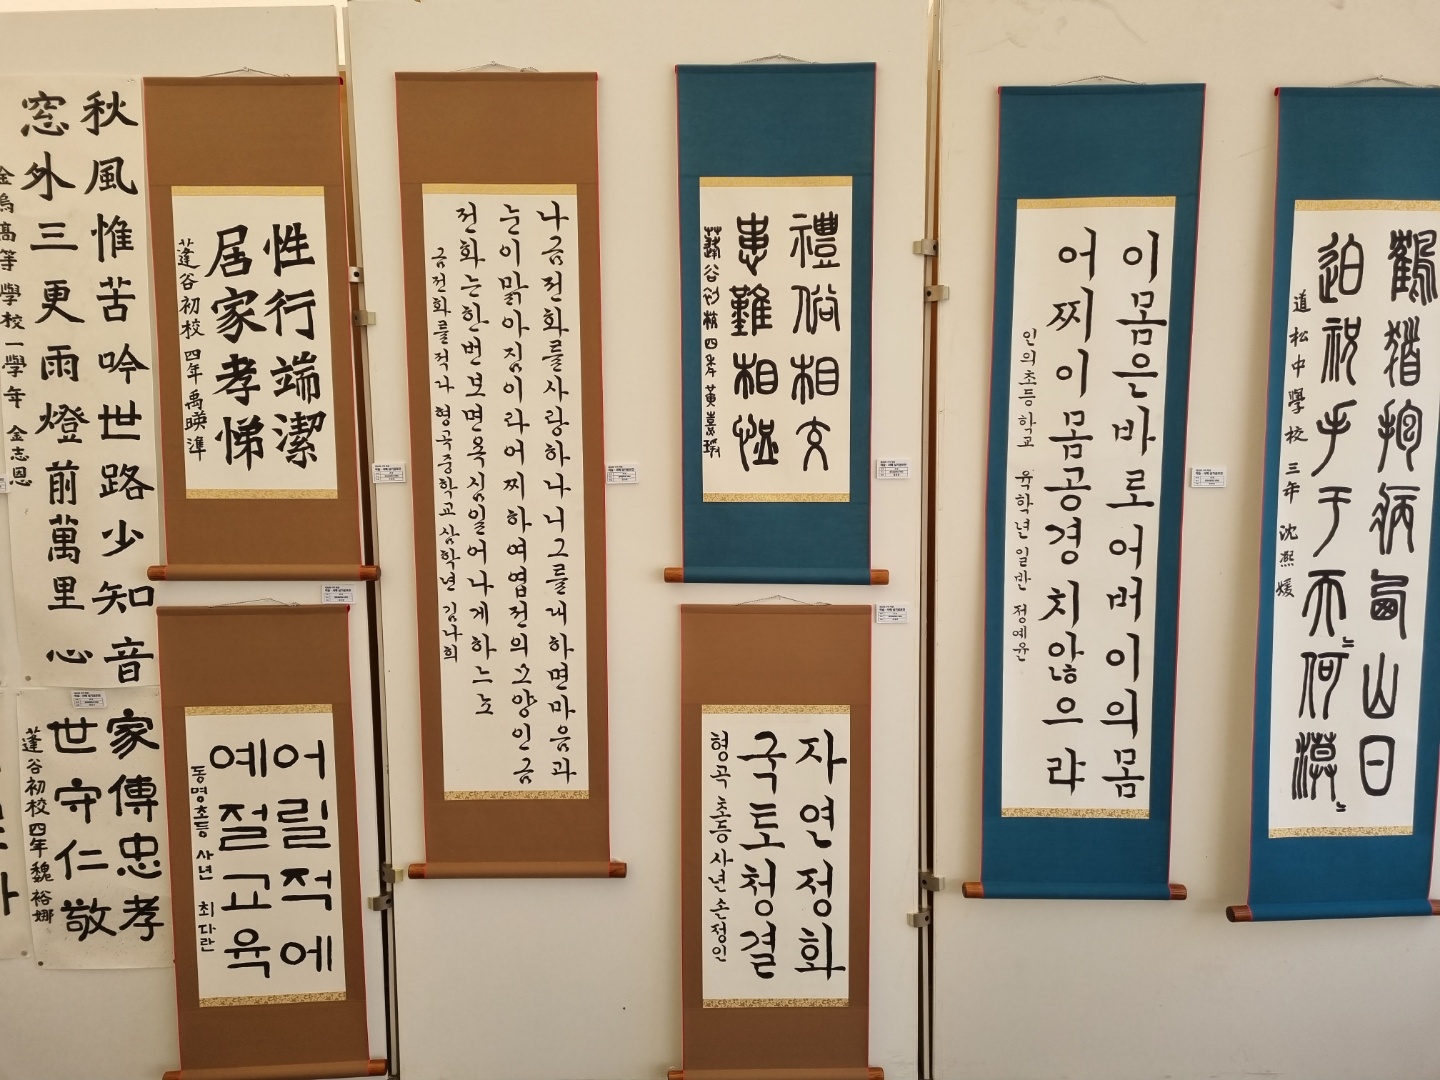 秋風惟苦吟世路少知音
窓外三更雨燈前萬里心
金烏高等學校一學年 金志恩
家傳忠孝
世守仁敬
蓬谷初校四年魏裕娜
性行端潔
居家孝悌
蓬谷初校四年禹暎準
어릴적에
예절교육
동명초등 사년 최다란
나금전화를사랑하나니그를대하면마음과
눈이맑아짐이라어찌하여엽전의모양인금
전화는한번보면욕심일어나게하느뇨
금전화를적다 형곡중학교삼학년 김나희
禮俗相交
患難相恤
자연정화
국토청결
형곡초등사년손정인
이몸은바로어버이의몸
어찌이몸공경치않으랴
인의초등학교 육학년일반 정예윤
鶴猶抱病
山日
迫祝手于天何漠
道松中學校三年沈